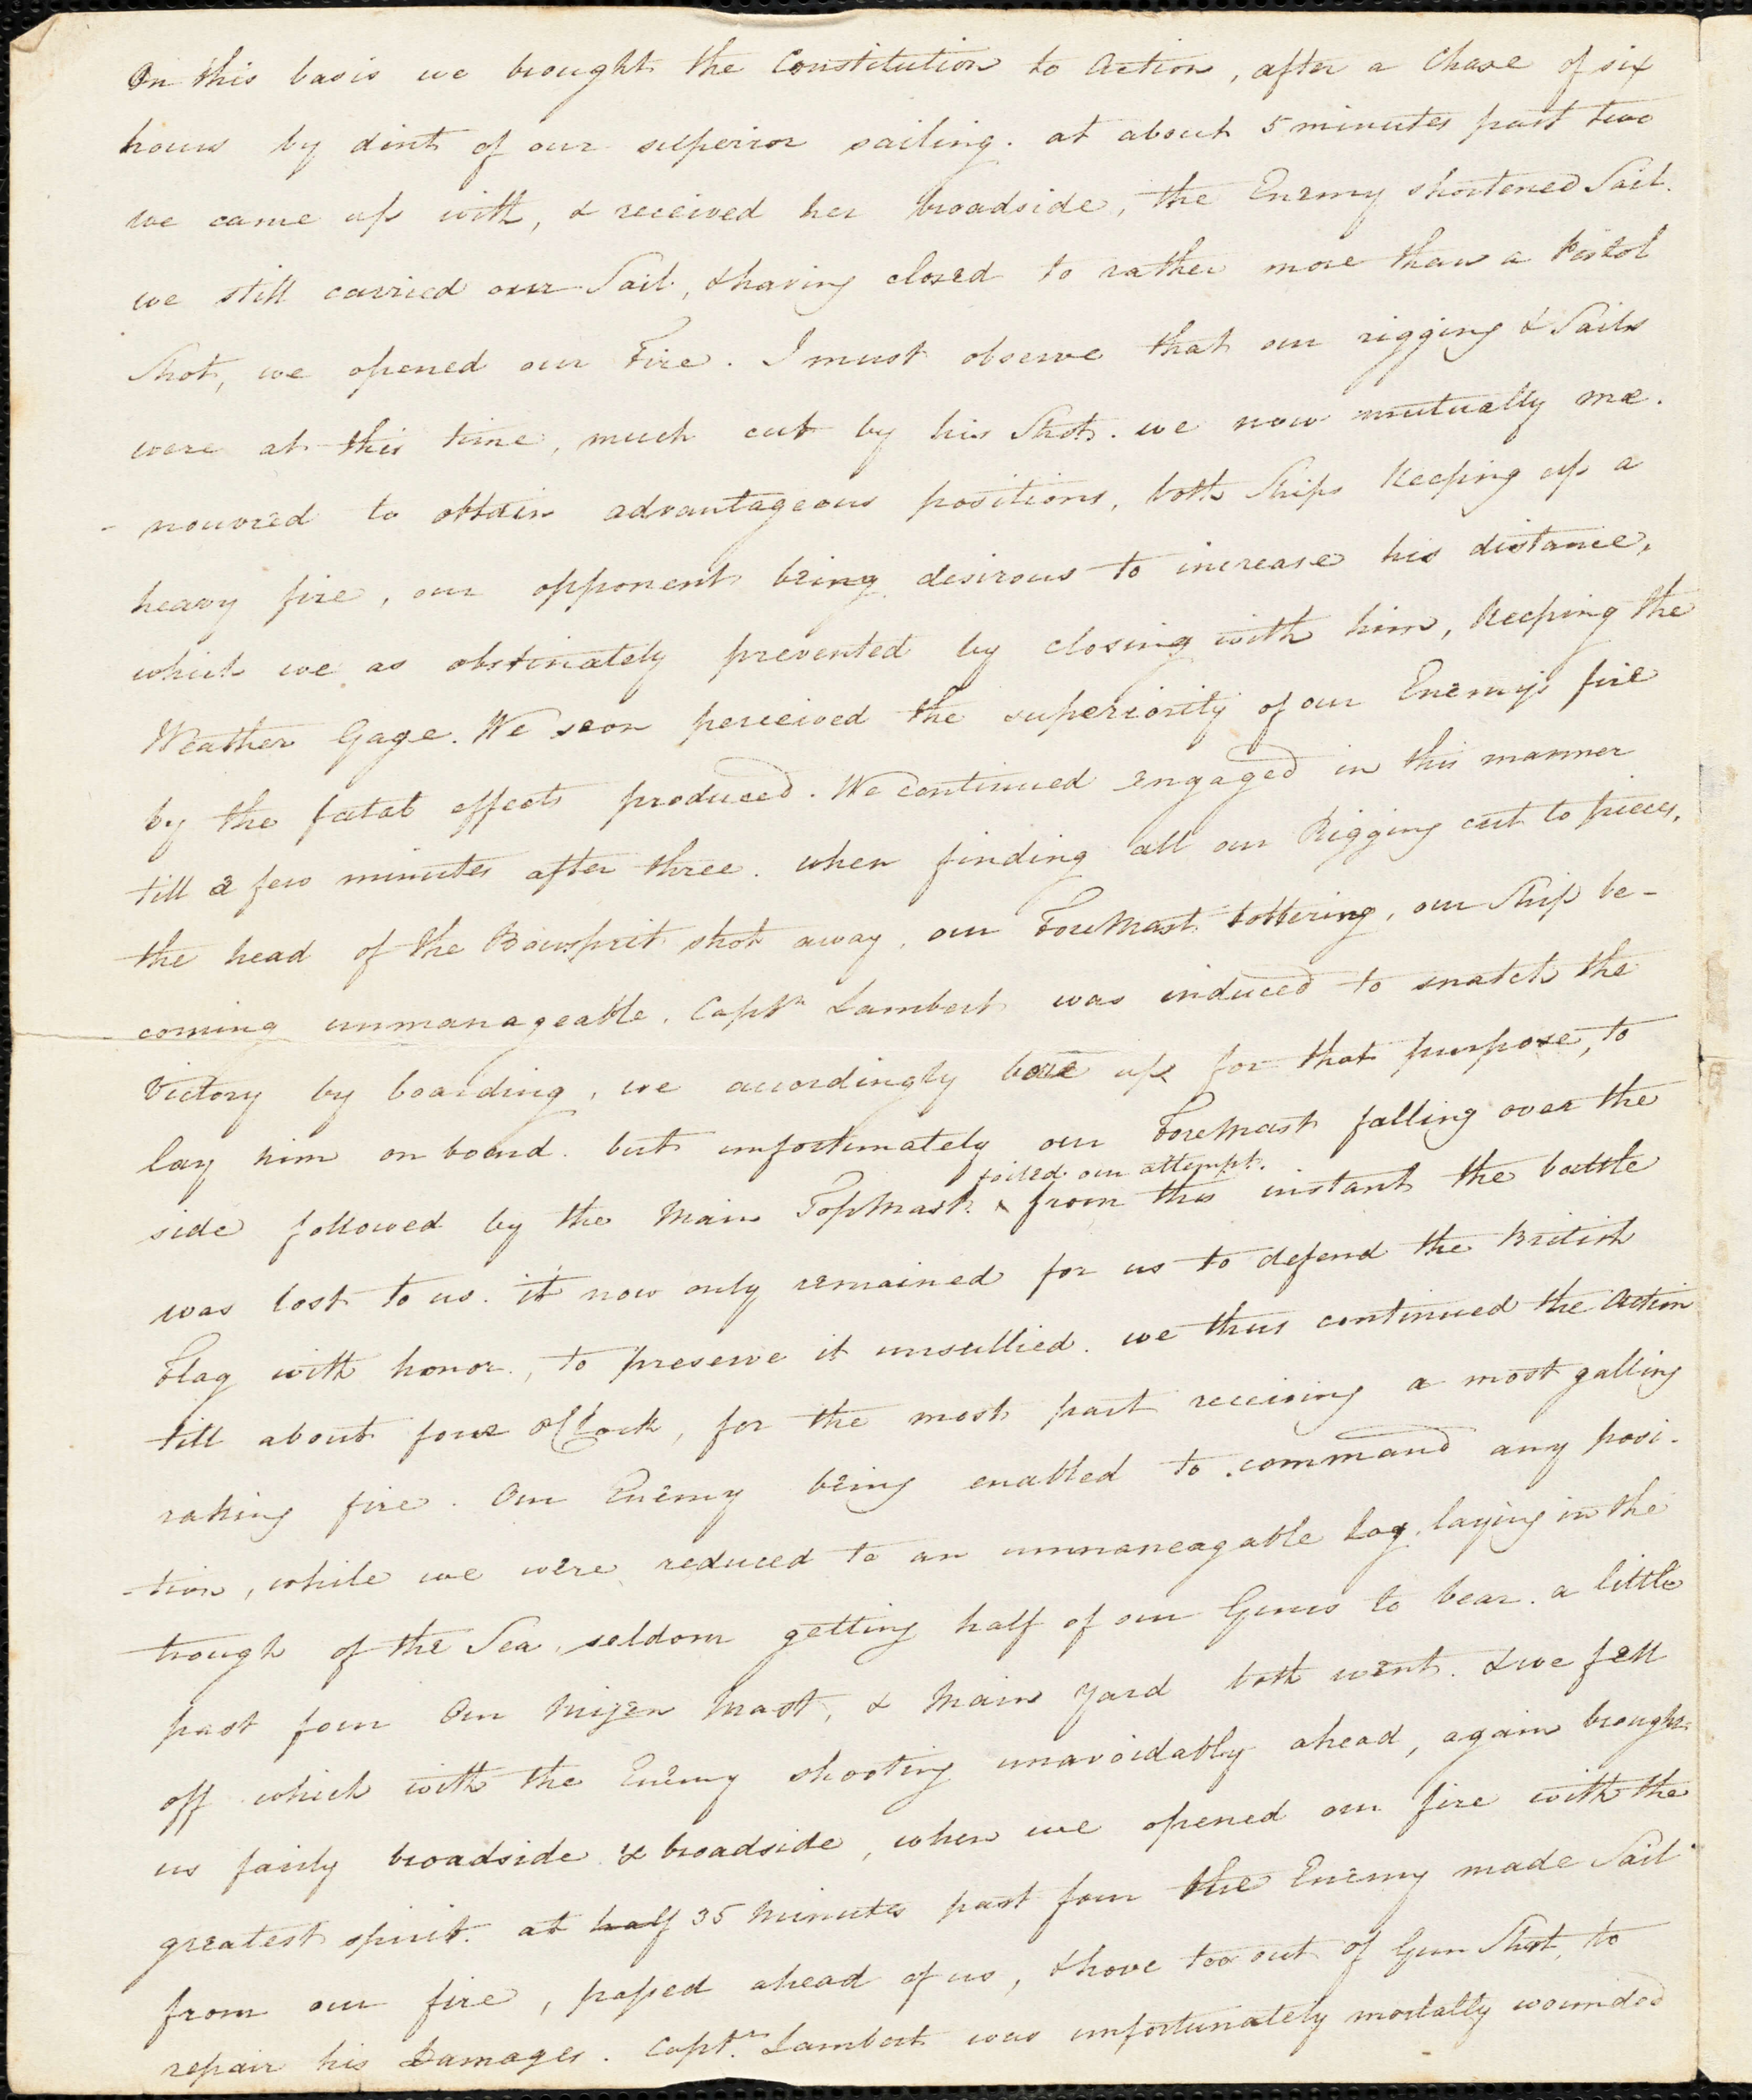 On this basis we brought the Constitution to Action, after a Chase of six
hours by dint of our superior sailing. at about 5 minutes past two
we came up with, & received her broadside, the Enemy shortened Sail.
we still carried our Sail, & having closed to rather more than a Pistol
Shot, we opened our Fire. I must observe that our rigging & Sails
were at this time, much cut by his Shot. we now mutually mæ.
- nouvred to obtain advantageous positions, both Ships Keeping up a
heavy fire, our opponent being desirous to increase his distance,
which we as obstinately prevented by closing with him, Keeping the
Weather Gage. We soon perceived the superiority of our Enemy's fire
by the fatal effects produced. We continued engaged in this manner
till a few minutes after three. when finding all our Rigging cut to pieces,
the head of the Bowsprit shot away, our ForeMast tottering, our Ship be-
coming unmanageable. Captn Lambert was induced to snatch the
Victory by boarding, we accordingly bore up for that purpose, to
lay him on board. but unfortunately our ForeMast falling over the
side followed by the Main TopMast. ^ foiled our attempt. from this instant the battle
was lost to us. it now only remained for us to defend the British
Flag with honor, to preserve it unsullied. we thus continued the Action
till about four o'Clock, for the most part receiving a most galling
raking fire. Our Enemy being enabled to command any posi-
-tion, while we were reduced to an unmaneagable Log, laying in the
trough of the Sea, seldom getting half of our Guns to bear. a little
past four Our Mizen Mast, & Main Yard both went. & we fell
off which with the Enemy shooting unavoidably ahead, again brought
us fairly broadside & broadside, when we opened our fire with the
greatest spirit. at half 35 Minutes past four the Enemy made Sail
from our fire, passed ahead of us, & hove too out of Gun Shot, to
repair his Damages. Captn. Lambert was unfortunately mortally wounded